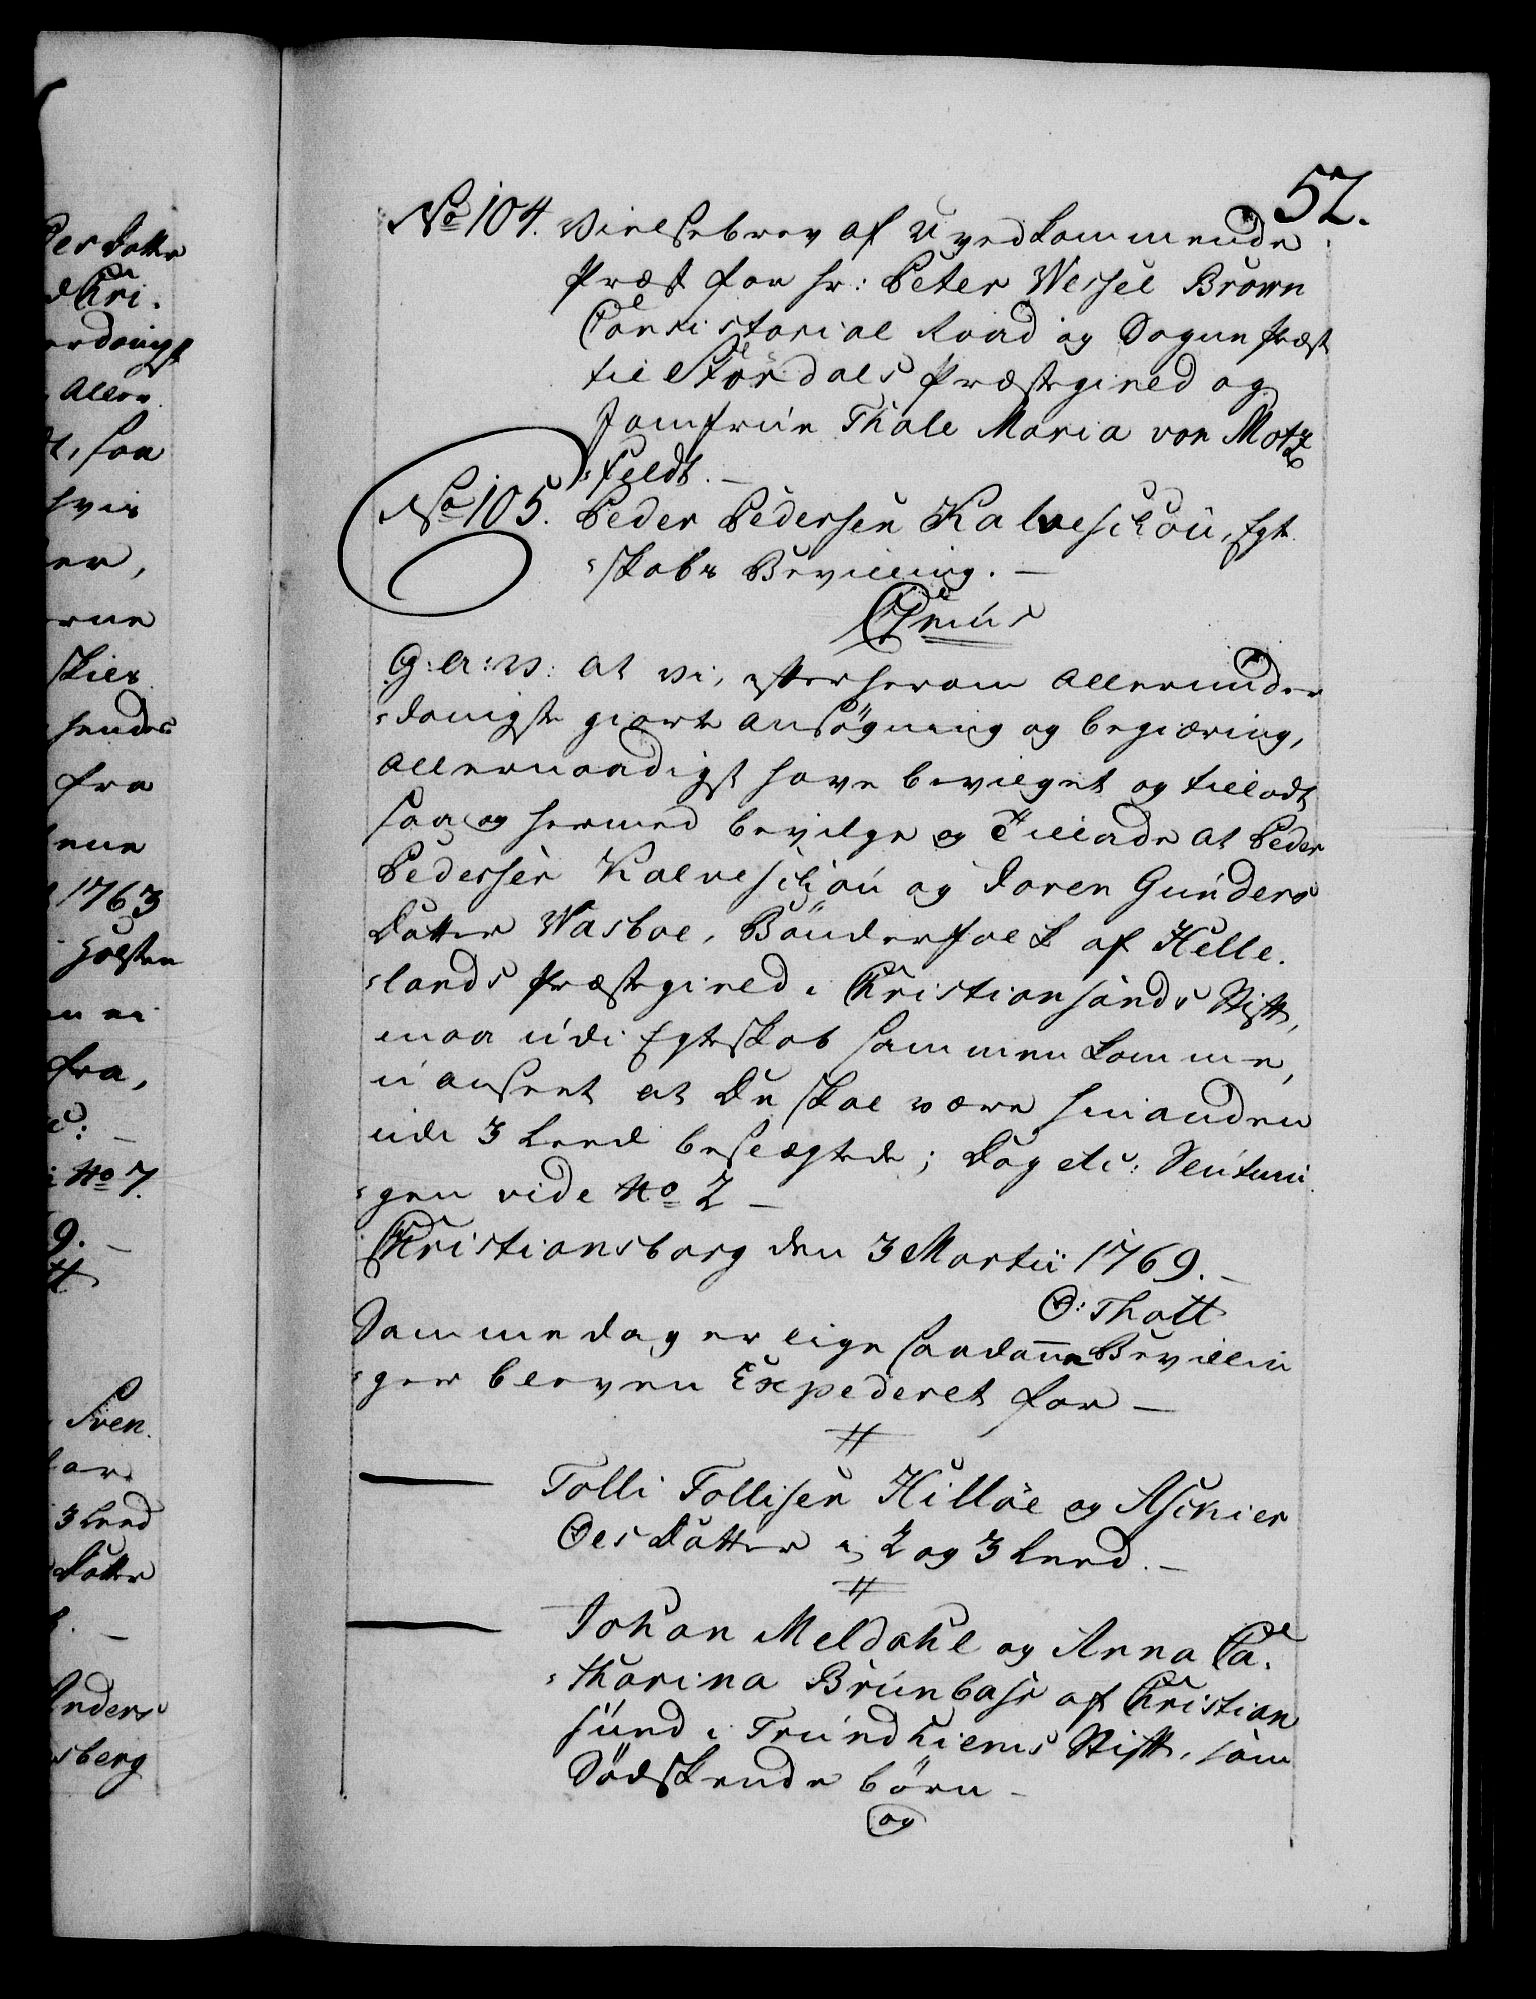 52.
No 104. Vielsebrev af Uvedkommende
Præst for Hr: Peter Wessel Brown
Consistorial Raad og Sogne Præst
til Stördals Præstegield og
Jomfrue Thale Maria von Motz
-feldt. -
No 105. Peder Pedersen Kalveschou, Egte
-skabs Bevilling. -
G: A: V: at Vi, efter herom allerunder
-danigste giorte Ansøgning og begiæring,
allernaadigst have bevilget og tilladt
saa og hermed bevilge og Tillade at Peder
Pedersen Kalveschou og Karen Gunders
Datter Wasboe, Bönderfolk af Helle-
-lands Præstegield i Christiansands Stift,
maa udi Egteskab sammen komme,
uanseet at De skal være hinanden
udi 3 Leed beslægtede; Dog etc: Slutnin-
-gen vide No 2 -
Christiansborg den 3 Martii 1769. -
O: Thott
Samme dag er lige saadanne Bevillin
-ger bleven Expederet for -
Tolli Tollisen Hilløe og Aschier
Oes Datter i 2 og 3 Leed. -
Johan Meldahl og Anna Ca-
-tharina Brünbass af Christian
sund i Trundhiems Stift, som
Södskende börn -
og
Des datter
Chri-
Aller
, saa
hvis
skier
hendes
fra
1763
Holsten
fra,
No 7.
9. -
Sven
3 Leed
Datter
Anders
sberg